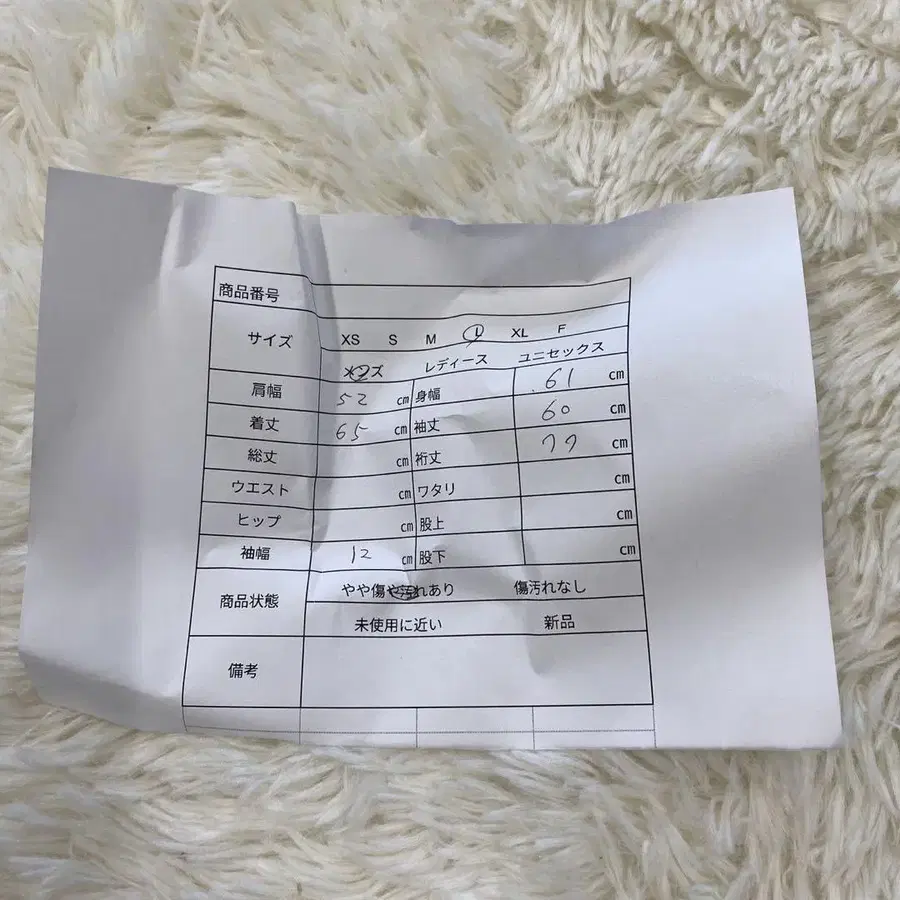 商品番号
サイズ XS S M L XL F
メンズ レディース ユニセックス
肩幅 52 cm 身幅 61 cm
着丈 65 cm 袖丈 60 cm
総丈 cm 裄丈 77 cm
ウエスト cm ワタリ cm
ヒップ cm 股上 cm
袖幅 12 cm 股下 cm
商品状態 やや傷や汚れあり 傷汚れなし
未使用に近い 新品
備考